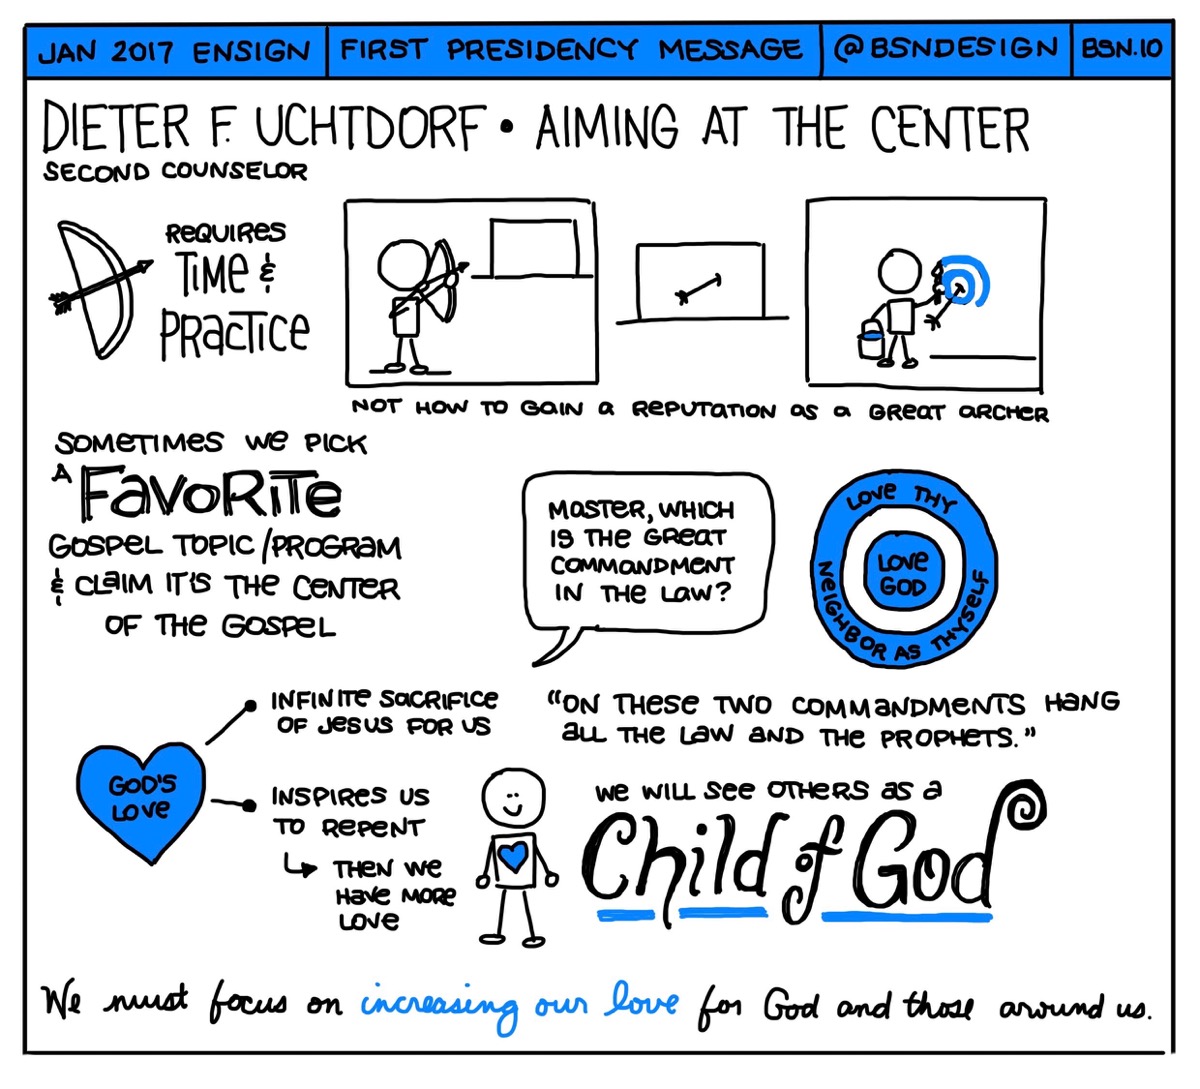 JAN 2017 ENSIGN
FIRST PRESIDENCY MESSAGE
@BSNDESIGN
BSN.IO
DIETER F. UCHTDORF • AIMING AT THE CENTER
SECOND COUNSELOR
REQUIRES
TIME &
PRACTICE
NOT HOW TO GAIN A REPUTATION AS A GREAT ARCHER
SOMETIMES WE PICK
A FAVORITE
GOSPEL TOPIC/PROGRAM
& CLAIM IT'S THE CENTER
OF THE GOSPEL
MASTER, WHICH
IS THE GREAT
COMMANDMENT
IN THE LAW?
LOVE THY
NEIGHBOR AS THYSELF
LOVE
GOD
"ON THESE TWO COMMANDMENTS HANG
ALL THE LAW AND THE PROPHETS."
GOD'S
LOVE
INFINITE SACRIFICE
OF JESUS FOR US
INSPIRES US
TO REPENT
THEN WE
HAVE MORE
LOVE
WE WILL SEE OTHERS AS A
Child of God
We must focus on increasing our love for God and those around us.